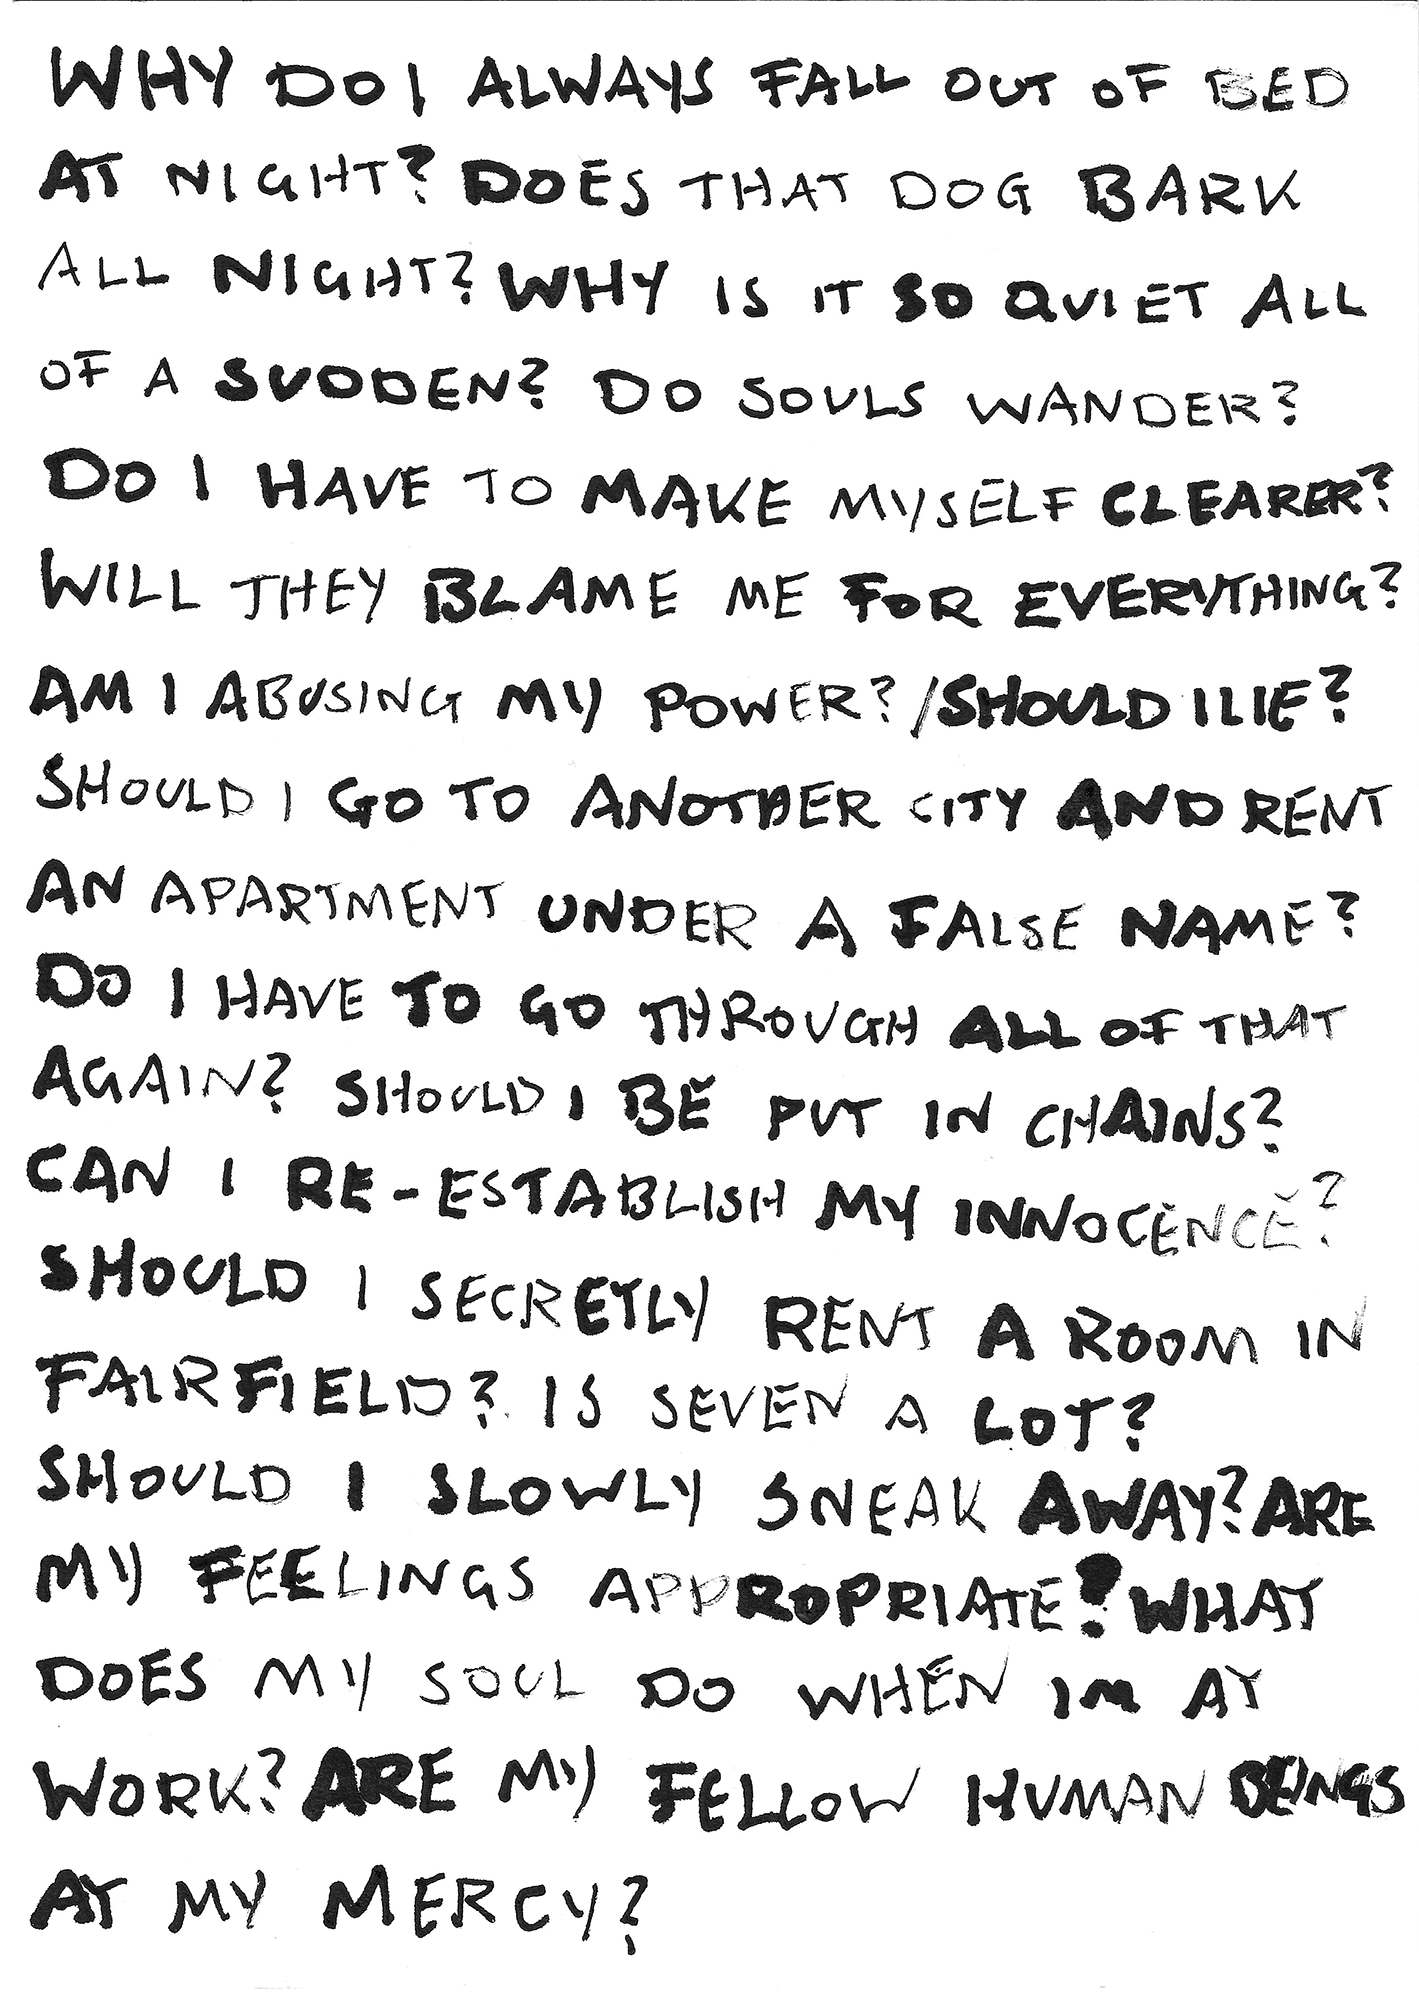 WHY DO I ALWAYS FALL OUT OF BED
AT NIGHT? DOES THAT DOG BARK
ALL NIGHT? WHY IS IT SO QUIET ALL
OF A SUDDEN? DO SOULS WANDER?
DO I HAVE TO MAKE MYSELF CLEARER?
WILL THEY BLAME ME FOR EVERYTHING?
AM I ABUSING MY POWER? / SHOULD I LIE?
SHOULD I GO TO ANOTHER CITY AND RENT
AN APARTMENT UNDER A FALSE NAME?
DO I HAVE TO GO THROUGH ALL OF THAT
AGAIN? SHOULD I BE PUT IN CHAINS?
CAN I RE-ESTABLISH MY INNOCENCE?
SHOULD I SECRETLY RENT A ROOM IN
FAIRFIELD? IS SEVEN A LOT?
SHOULD I SLOWLY SNEAK AWAY? ARE
MY FEELINGS APPROPRIATE? WHAT
DOES MY SOUL DO WHEN IM AT
WORK? ARE MY FELLOW HUMAN BEINGS
AT MY MERCY?